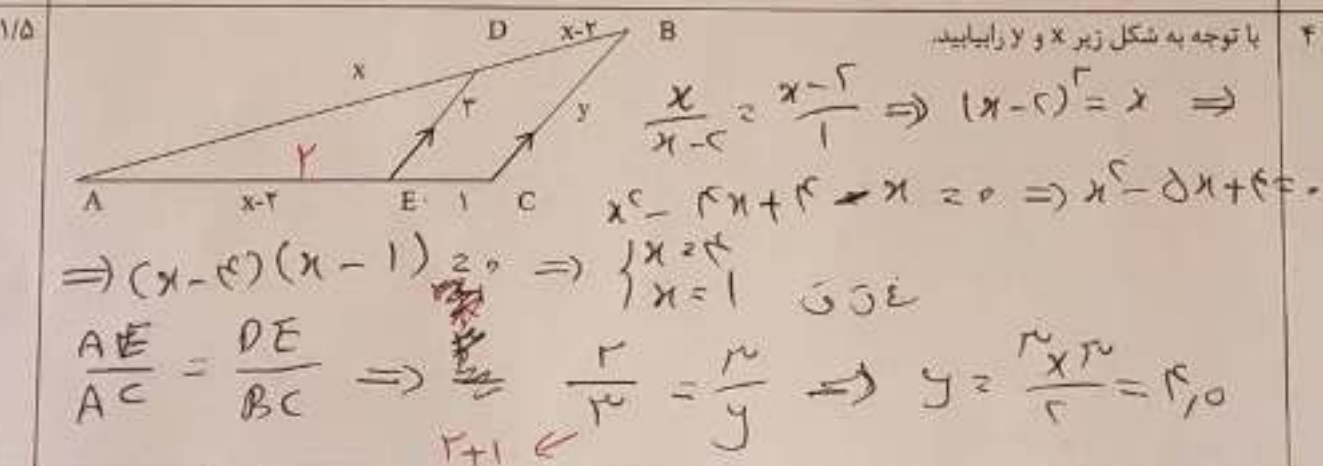 ۴ با توجه به شکل زیر x و y رابیابید.
۱/۵
D x-۲ B
x ۳ y
A x-۲ ۲ E ۱ C
x/(x-۲) = (x-۲)/۱ ⇒ (x-۲)^۲ = x ⇒
x^۲ - ۴x + ۴ - x = ۰ ⇒ x^۲ - ۵x + ۴ = ۰
⇒ (x-۴)(x-۱) = ۰ ⇒ { x = ۴
x = ۱ غ ق ق
AE/AC = DE/BC ⇒ ۲/۳ = ۳/y ⇒ y = ۳×۳/۲ = ۴,۵
۲+۱ ←